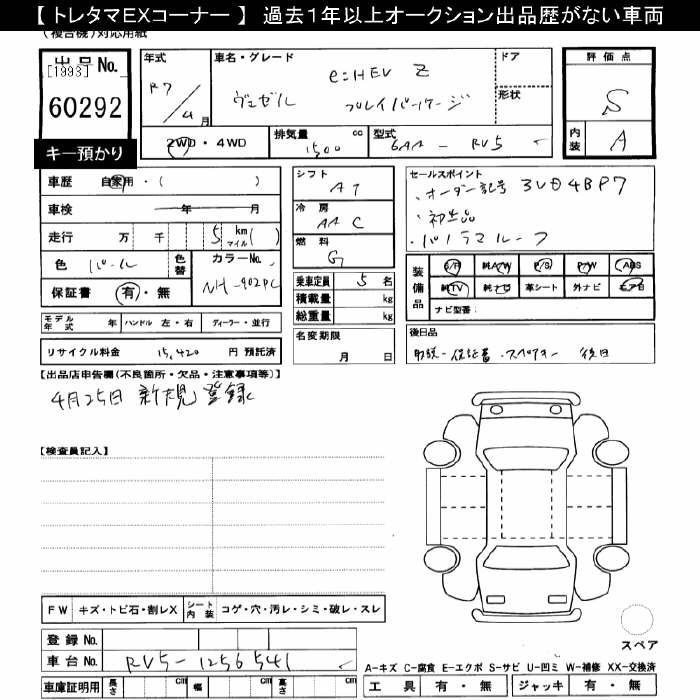 【 トレタマEXコーナー 】 過去1年以上オークション出品歴がない車両
(複合機)対応用紙
出品 No.
[1993]
60292
キー預かり
年式
R7/4月
車名・グレード
e:HEV Z
ヴェゼル プレイパッケージ
ドア
形状
評価点
S
内装
A
2WD・4WD
排気量 1500 cc
型式 6AA - RV5
車歴 自家用・( )
車検 年 月
走行 万 千 5 km マイル( )
色 パール
色替
カラーNo. NH-902PL
保証書 有・無
モデル年式 年 ハンドル 左・右 ディーラー・並行
リサイクル料金 15,420 円 預託済
シフト
AT
冷房
AAC
燃料
G
乗車定員 5 名
積載量 kg
総重量 kg
名変期限
月 日
セールスポイント
・オーダー記号 3VD4BP7
・初生品
・パノラマルーフ
装備品
S/R 純A/W P/S P/W ABS
純TV 純ナビ 革シート 外ナビ エアB
ナビ型番:
後日品
取説・保証書・スペアキー 後日
【出品店申告欄(不良箇所・欠品・注意事項等)】
4月25日 新規登録
【検査員記入】
FW キズ・トビ石・割レX シート内装 コゲ・穴・汚レ・シミ・破レ・スレ
登録 No.
車台 No. RV5-1256541
車庫証明用 長さ cm 幅 cm 高さ cm
スペア
A-キズ C-腐食 E-エクボ S-サビ U-凹ミ W-補修 XX-交換済
工具 有・無 ジャッキ 有・無